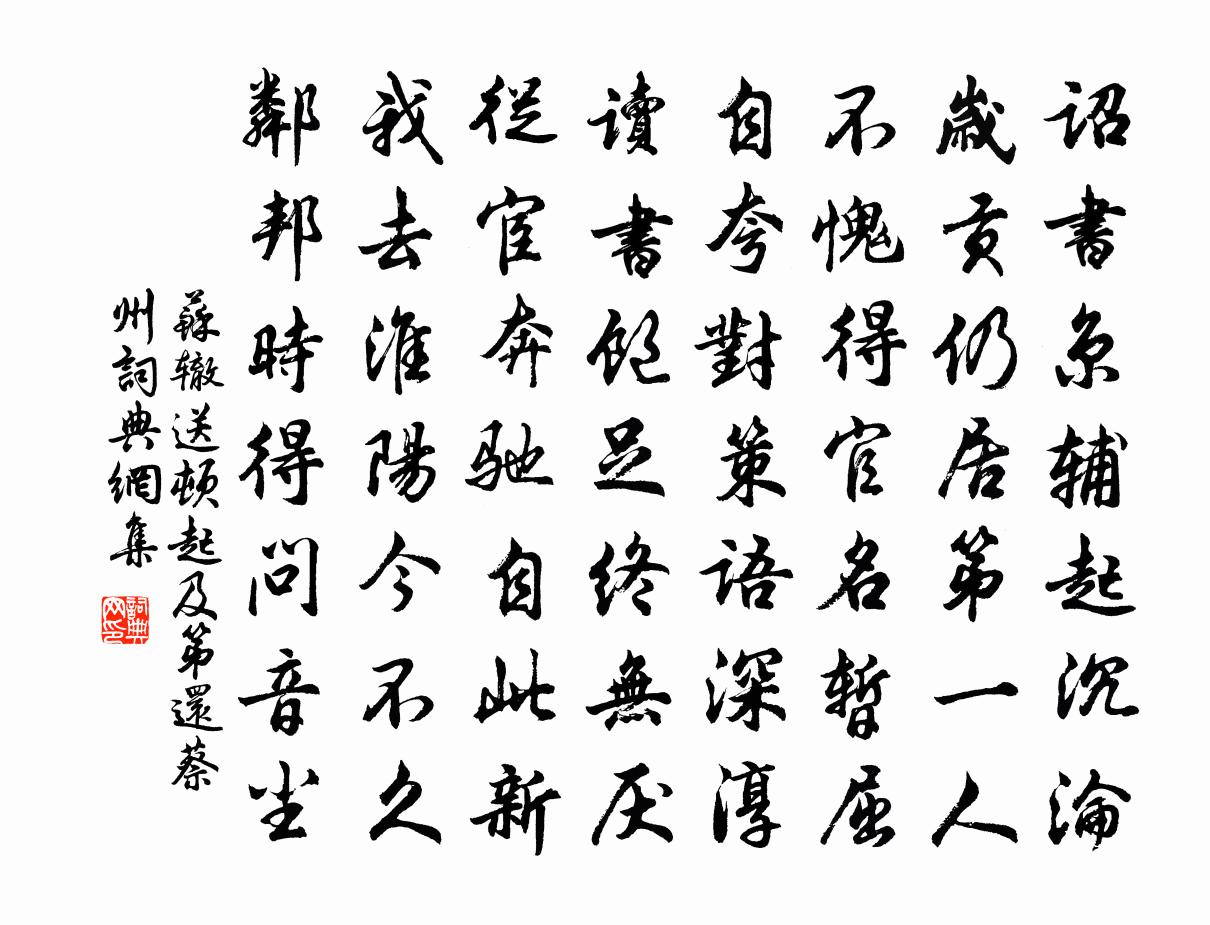 詔書京辅起沉淪
歲貢仍居第一人
不愧得官名暫屈
自夸對策語深淳
讀書飽足终無厌
從宦奔馳自此新
我去淮陽今不久
鄰邦時得問音尘
蘇辙送頓起及第還蔡
州詞典網集
詞典网印